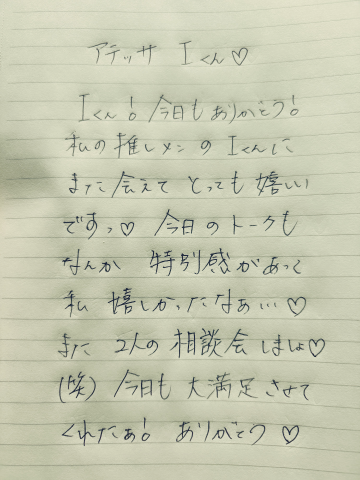 アテッサ Iくん♡
Iくん! 今日もありがとう!
私の推しメンのIくんに
また会えてとっても嬉しい
ですっ♡ 今日のトークも
なんか 特別感があって
私 嬉しかったなぁ…♡
また 2人の相談会しましょ♡
(笑) 今日も大満足させて
くれたぁ! ありがとう♡